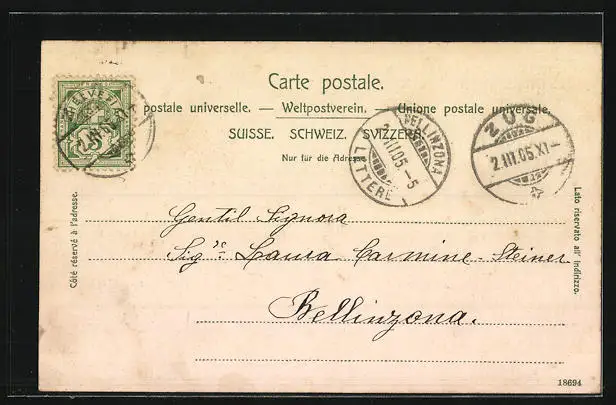 Carte postale.
postale universelle. — Weltpostverein. — Unione postale universale.
SUISSE. SCHWEIZ. SVIZZERA.
Nur für die Adresse.
HELVETIA
5
BELLINZONA
III 05 - 5
LETTERE
ZUG
2.III.05.XI-
Côté réservé à l'adresse.
Lato riservato all' indirizzo.
Gentil Signora
Sig.ra Laura Carmine-Steiner
Bellinzona.
18694